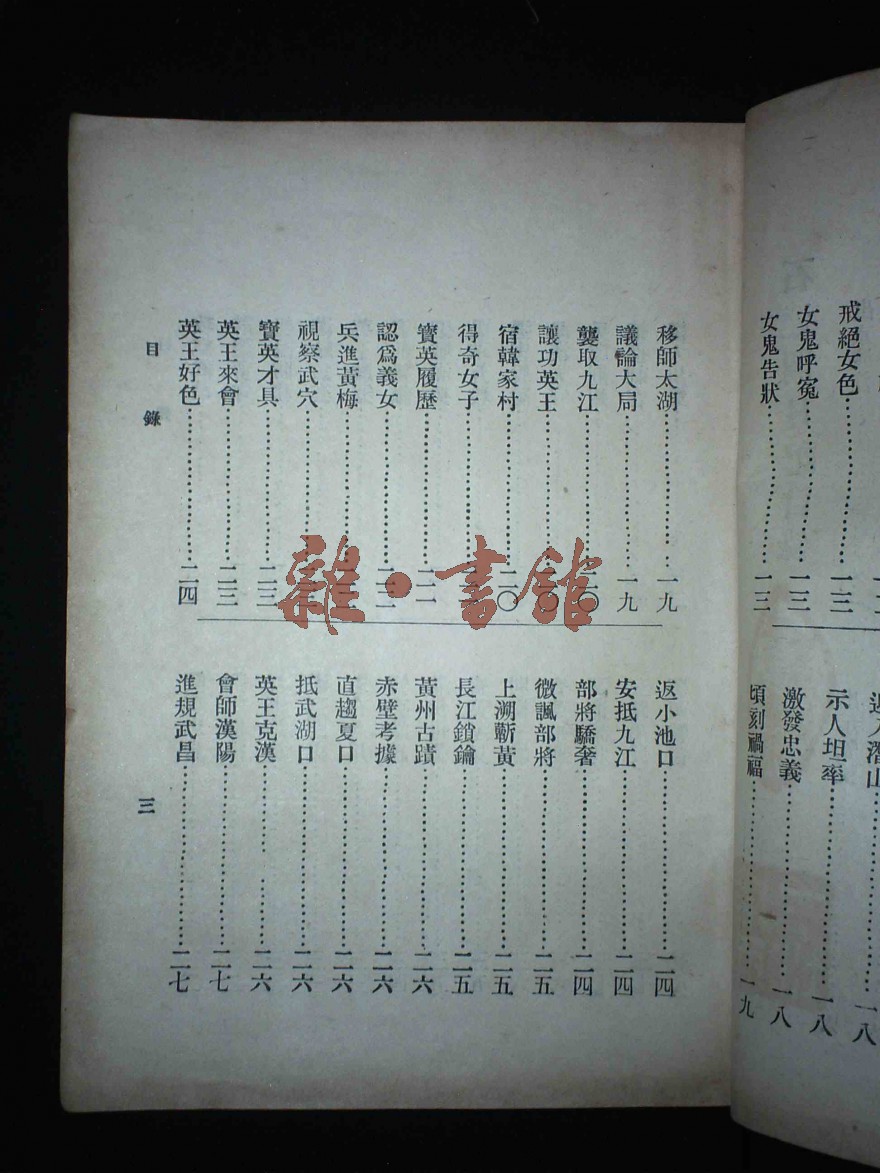 戒絕女色……一三
女鬼呼冤……一三
女鬼告狀……一三
示人坦率……一八
激發忠義……一八
頃刻禍福……一九
移師太湖……一九
議論大局……一九
襲取九江……二〇
讓功英王……二〇
宿韓家村……二〇
得奇女子……
寶英履歷……二一
認爲義女……
兵進黃梅……
視察武穴……
寶英才具……二三
英王來會……二三
英王好色……二四
返小池口……二四
安抵九江……二四
部將驕奢……二四
微諷部將……二五
上溯蘄黃……二五
長江鎖鑰……二五
黃州古蹟……二六
赤壁考據……二六
直趨夏口……二六
抵武湖口……二六
英王克漢……二六
會師漢陽……二七
進規武昌……二七
目錄
三
雜·書館